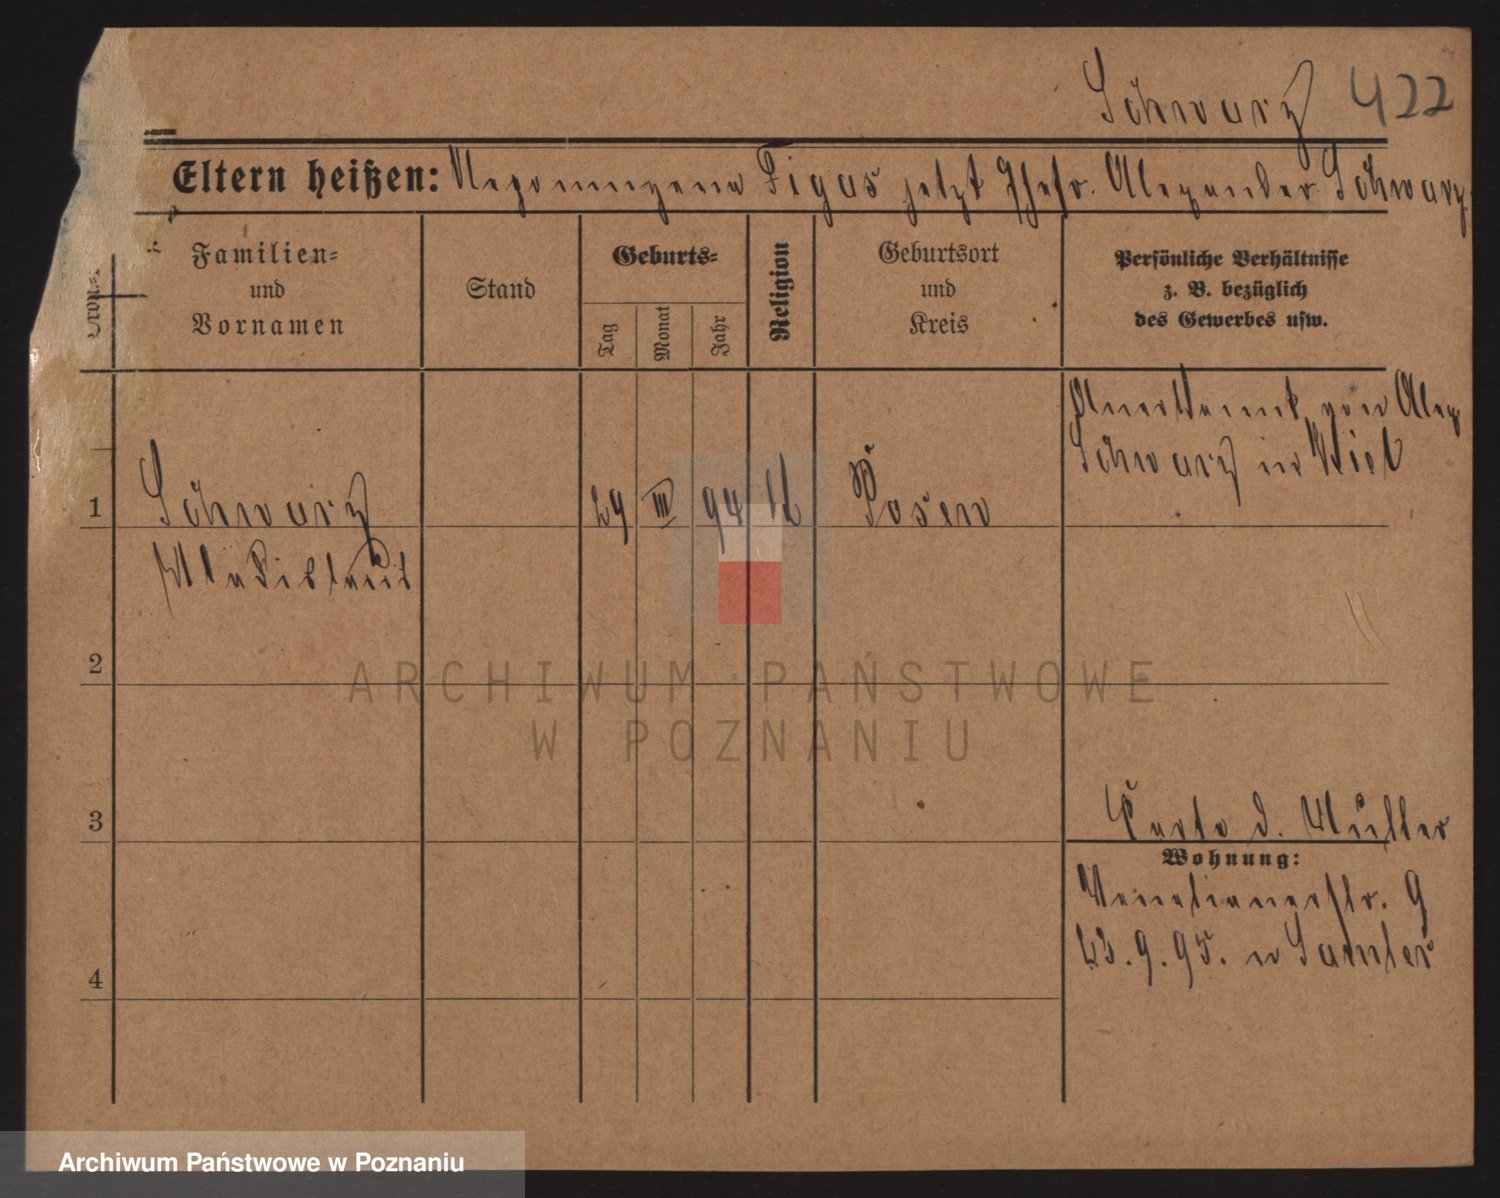 Schwarz 422
Eltern heißen: Nepomuzena Figas jetzt Ehefr. Alexander Schwarz.
Familien= und Vornamen
Stand
Geburts=
Tag Monat Jahr
Religion
Geburtsort und Kreis
Persönliche Verhältnisse
z. B. bezüglich
des Gewerbes usw.
Anerkannt von Alex
Schwarz in Kiel
1 Schwarz 29 III 94 k Posen
Wladislaus
2
3
Karte d. Mutter
Wohnung:
Venetianerstr. 9
23.9.95. n Samter
4
ARCHIWUM PAŃSTWOWE
W POZNANIU
Archiwum Państwowe w Poznaniu